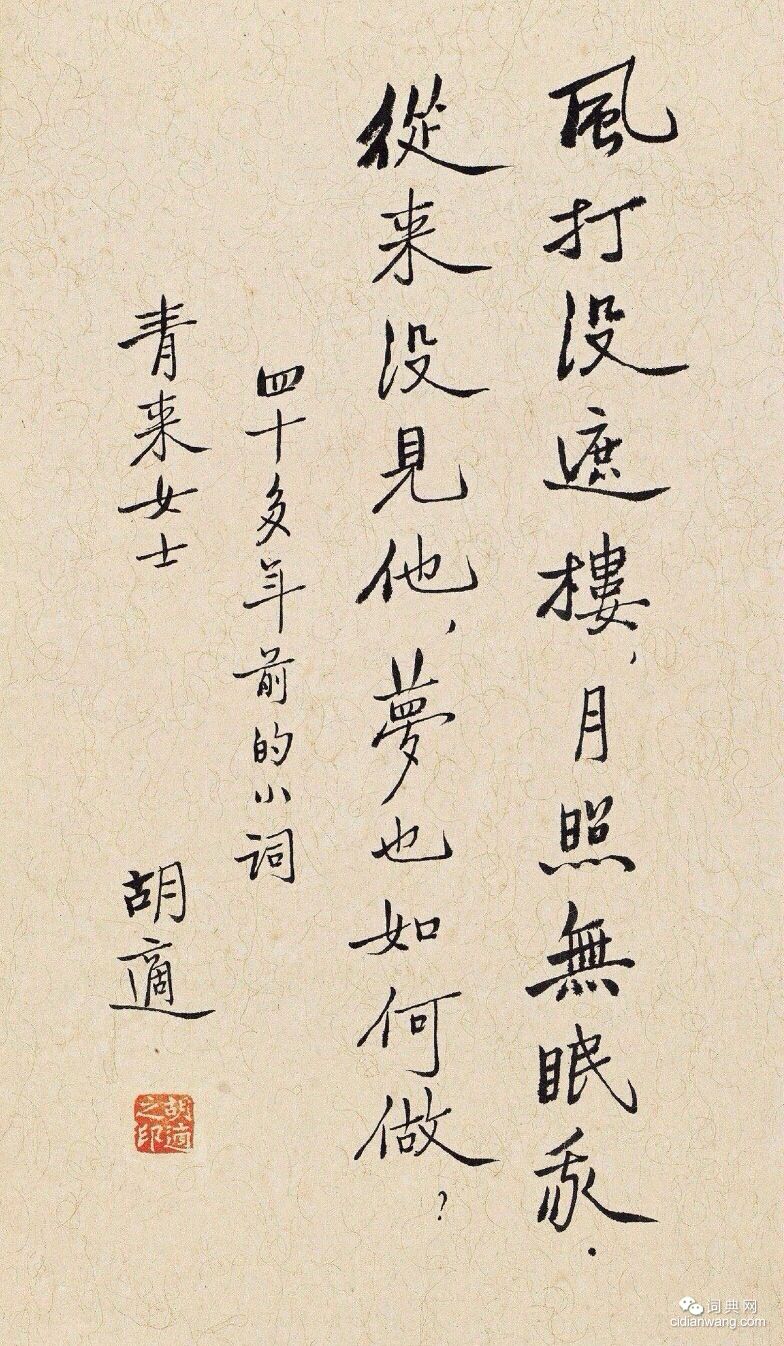 風打没遮樓，月照無眠我．
從来没見他，夢也如何做？
四十多年前的小词
青来女士
胡適
胡適之印
词典网
cidianwang.com